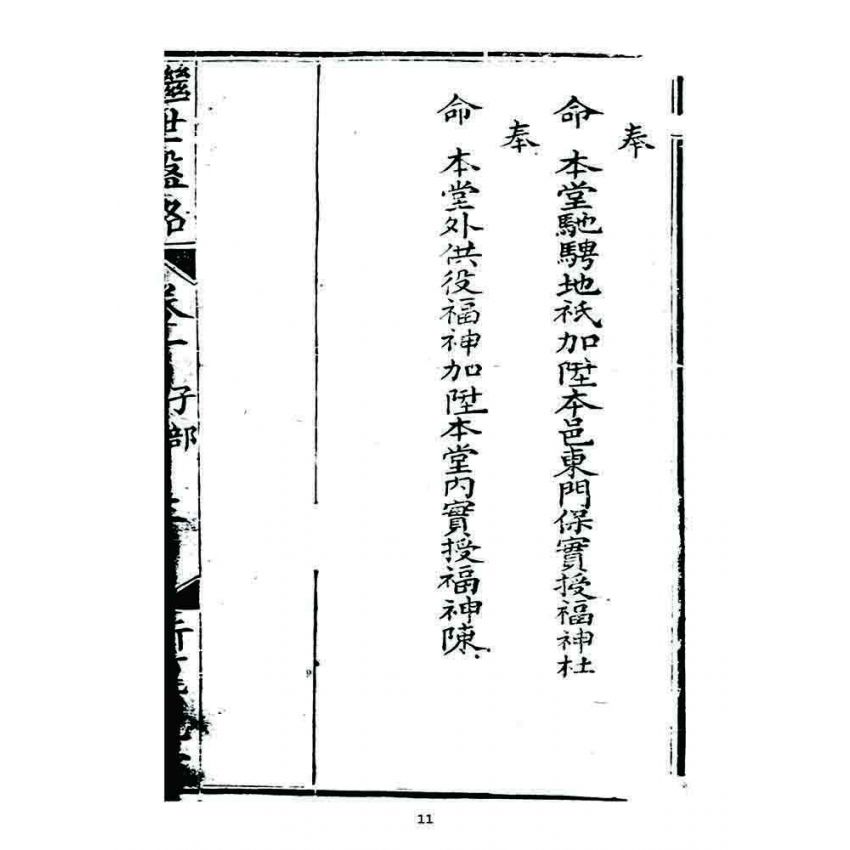 奉
命 本堂馳騁地祇加陞本邑東門保實授福神杜
奉
命 本堂外供役福神加陞本堂內實授福神陳
繼世盤銘
子部
11